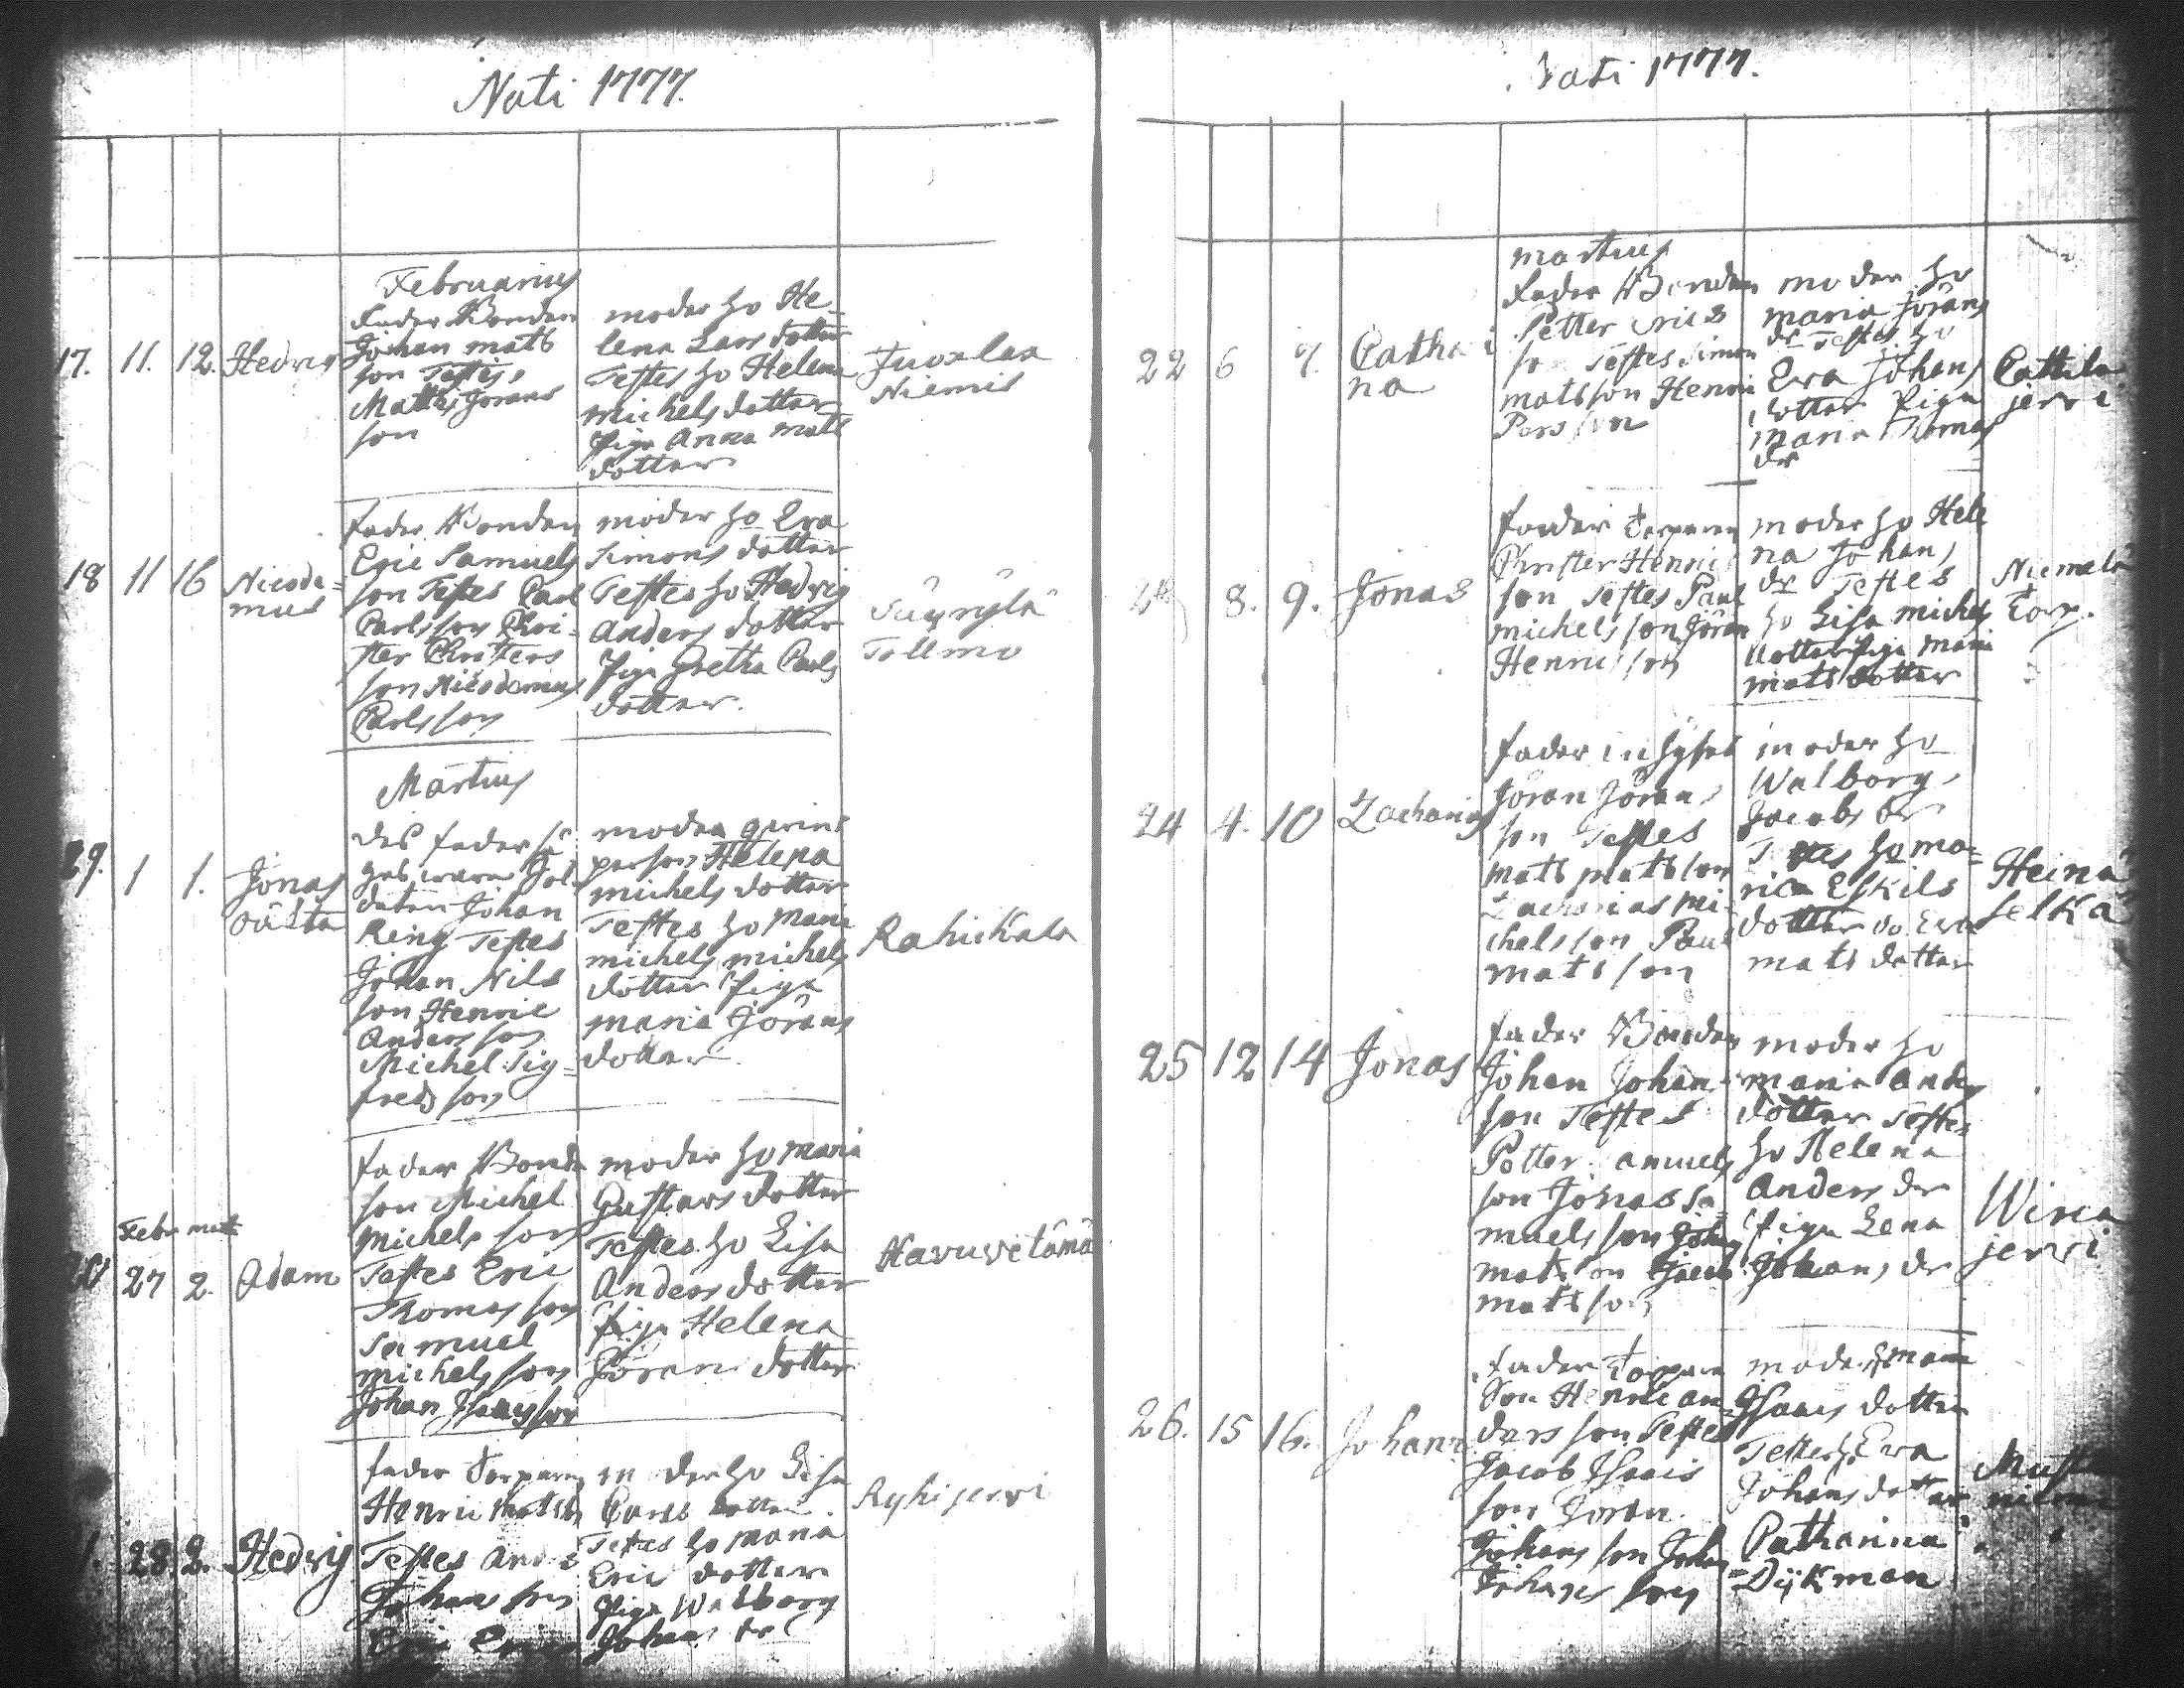 Nati 1777.
Februarius
17. 11. 12. Hedvig
Fader Bonden
Johan Mats
son Testes
Matts Jörans
son
moder ho He-
lena Lars dotter
Testes ho Helena
Michels dotter
Piga Anna Mats
dotter
Niemis
18 11 16 Nicode=
mus
Fader Bonden
Eric Samuels
son Testes Carl
Carlsson Chri-
ster Christers
son Nicodemus
Carlsson
moder ho Eva
Simons dotter
Testes ho Hedvig
Anders dotter
Piga Gretha Carls
dotter.
Säynylä
Martius
1 1. Jonas
oächta
des fader
daten Johan
Ring Testes
Johan Nils
son Henric
Andersson
Michel Sig=
fredsson
moder qvins
person Helena
Michels dotter
Testes ho Maria
Michels Michels
dotter Piga
Maria Jörans
dotter.
Rahikala
Febr mart
27 2. Adam
Fader Bonde
son Michel
Michels son
Testes Eric
Thomasson
Samuel
Michelsson
Johan Isacsson
moder ho Maria
Gustavs dotter
Testes ho Lisa
Anders dotter
Piga Helena
Jörans dotter
Havuvetämä
28. 2. Hedvig
Fader Torparen
Henric Matsson
Testes Anders
Johansson
moder ho Lisa
dotter
Testes ho Maria
Erics dotter
Piga Walborg
Johans dr
Ryhijervi
Nati 1777.
Martius
22 6 9. Catha
na
Fader Bonden
Petter Erics
son Testes Simon
Matsson Henric
Persson
moder ho
Maria Jörans
dr Testes ho
Eva Johans
dotter Piga
Maria Thomas
dr
Cattila
jervi
8. 9. Jonas
Fader Torparen
Christer Henric
son Testes Paul
Michelsson Jöran
Henricsson
moder ho Hele
na Johans
dr Testes
ho Lisa Michels
dotter Piga Maria
Mats dotter
Niemelä
Torp.
24 4. 10 Zacharias
Fader Inhyses
Jöran Jörans
son Testes
Mats Matsson
Zacharias Mi-
chelsson Paul
Matsson
moder ho
Walborg
Jacobs dr
Testes ho Ma=
ria Eskils
dotter do Eva
Mats dotter
Heinä
selkä
25 12 14 Jonas
Fader Bonden
Johan Johans
son Testes
Petter Samuels
son Jonas Sa=
muelsson Johan
Matsson Jacob
Matsson
moder ho
Maria Anders
dotter Testes
ho Helena
Anders dr
Piga Lena
Johans dr
jervi
26. 15 16. Johan
Fader Torpare
Son Henric An-
dersson Testes
Jacob Isacs
son Jöran
Johansson Johan
Johansson
moder ho Maria
Isacs dotter
Testes Eva
Johans dotter
Catharina
Dykman